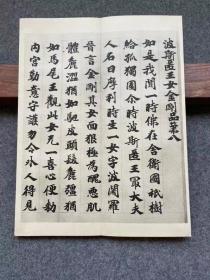 波斯匿王女金剛品第八
如是我聞一時佛在舍衛國祇樹
給孤獨園尒時波斯匿王最大夫
人名曰摩利時生一女字波闍羅
晉言金剛其女面狠極為醜惡肌
體麁澀猶如駝皮頭髮麁彊猶
如馬尾王觀此女无一喜心便勅
内宮懃意守護勿令外人得見